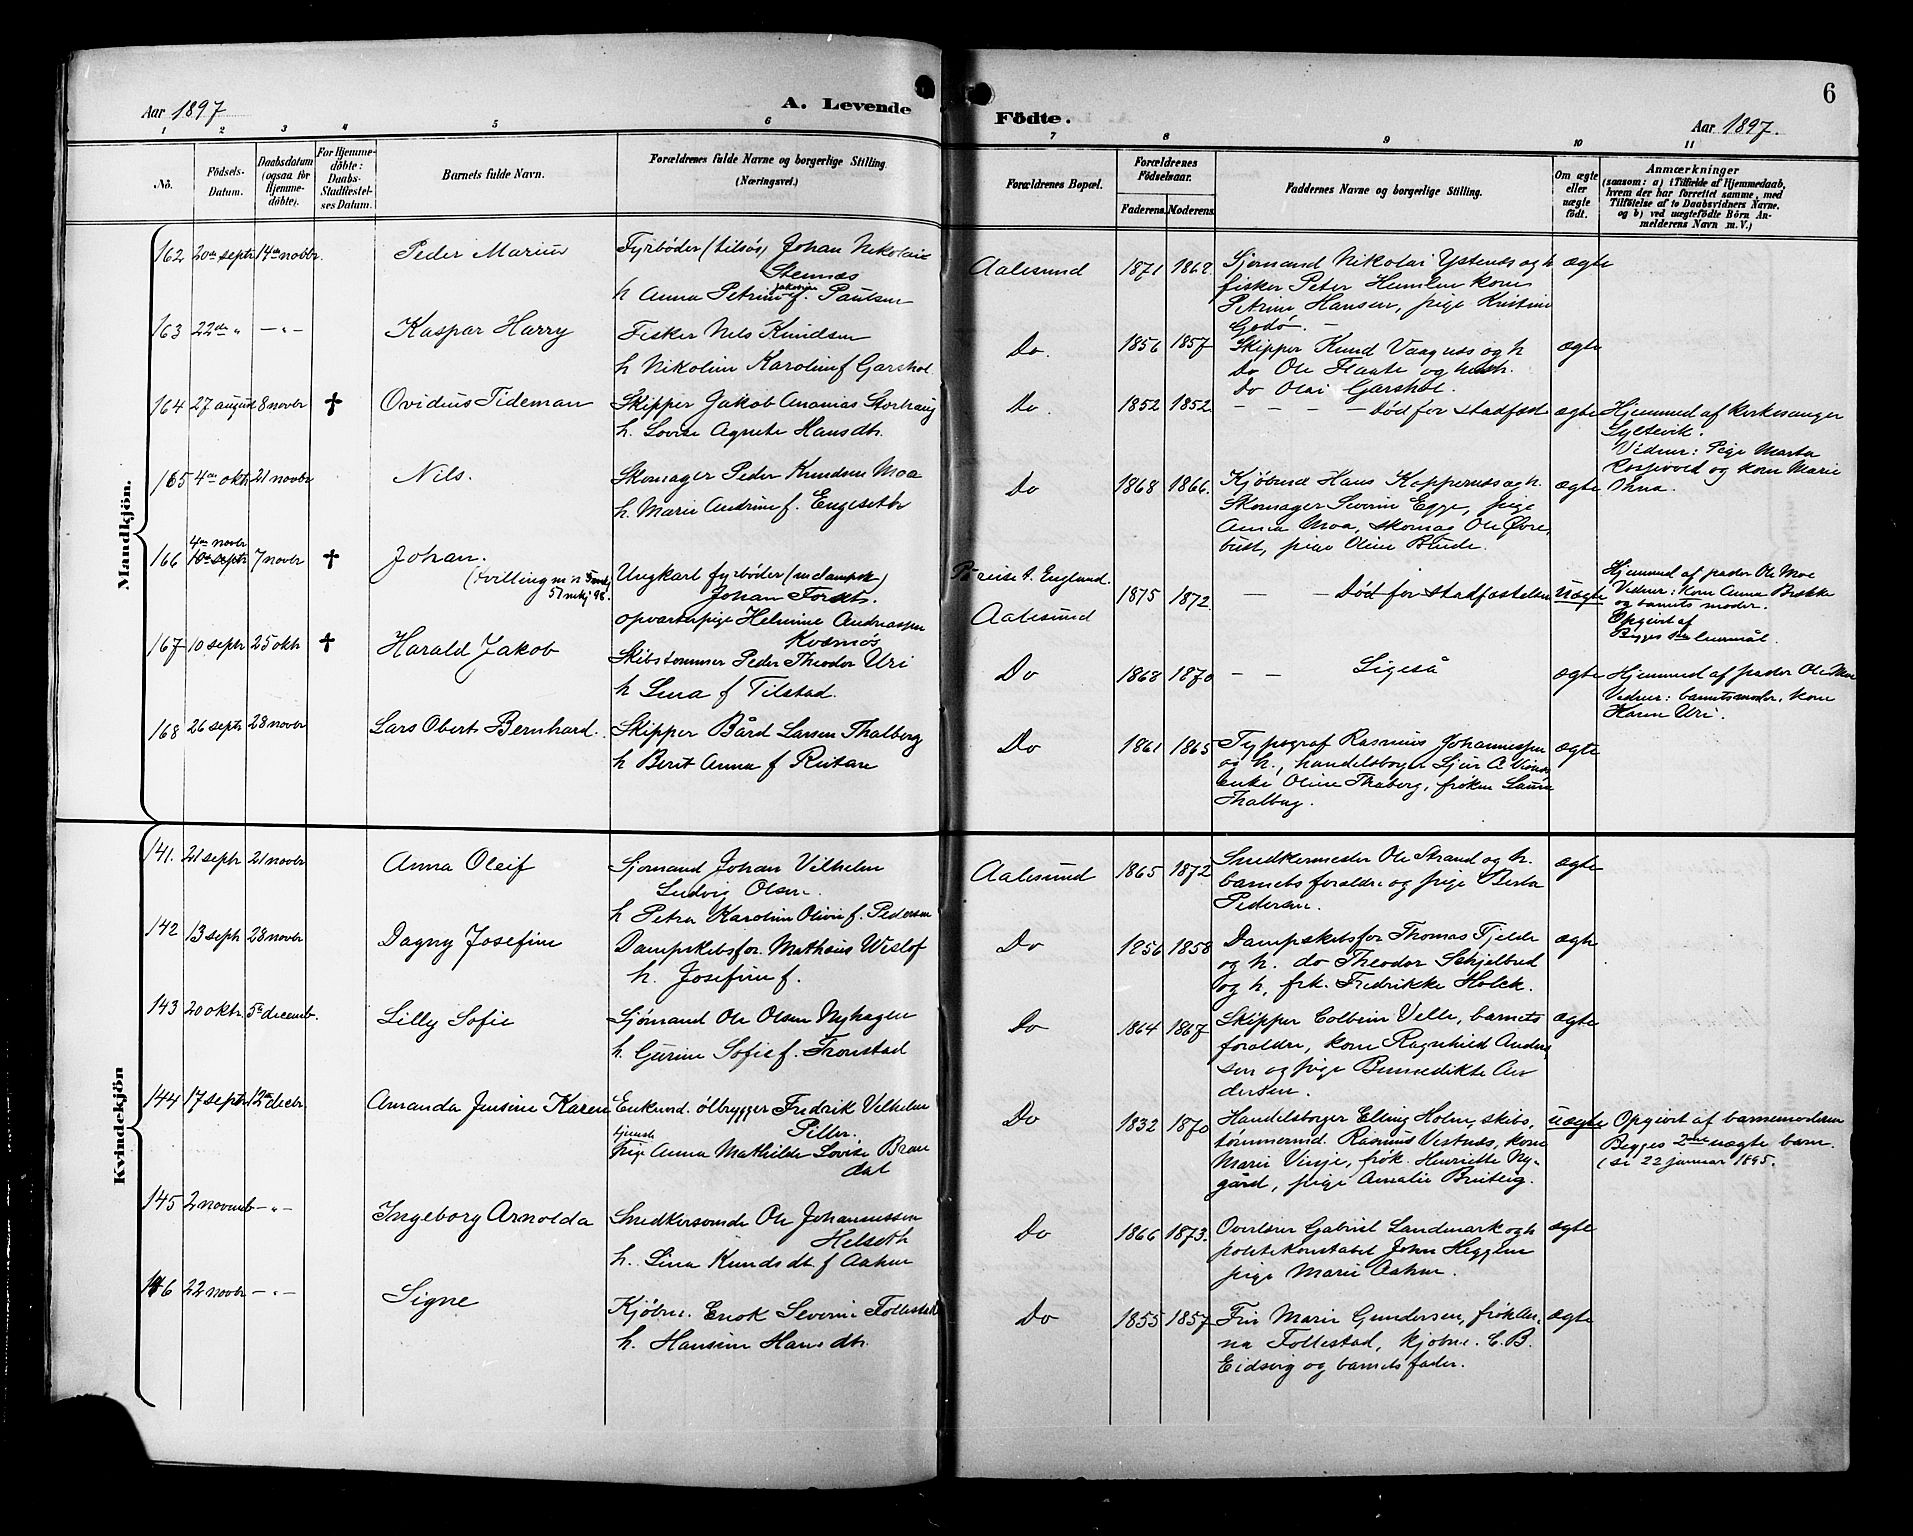 Aar 1897
A. Levende
Födte.
Aar 1897.
6
1 2 3 4 5 6 7 8 9 10 11
No.
Födsels-
Datum.
Daabsdatum
(ogsaa for
Hjemme-
döbte).
For Hjemme-
döbte:
Daabs-
Stadfæstel-
ses Datum.
Barnets fulde Navn.
Forældrenes fulde Navne og borgerlige Stilling.
(Næringsvei.)
Forældrenes Bopæl.
Forældrenes
Födselsaar.
Faderens. Moderens.
Faddernes Navne og borgerlige Stilling.
Om ægte
eller
uægte
födt.
Anmærkninger
(saasom: a) i Tilfælde af Hjemmedaab,
hvem der har forrettet samme, med
Tilföielse af to Daabsvidners Navne.
og b) ved uægtefödte Börn An-
melderens Navn m. V.)
Mandkjön.
162 20de septr 14de novbr. Peder Marius
Fyrbøder (tilsøs) Johan Nikolai
Stennæs
h Anna Petrine Jakobine f. Paulsen
Aalesund 1871 1862.
Sjømand Nikolai Ystenes og h
fisker Peter Humlen kone
Petrine Hansen, pige Kristine
Godø. —
ægte
163 22de " — " — Kaspar Harry
Fisker Nils Knudsen
h Nikoline Karoline f Garshol
Do. 1856 1857
Skipper Knud Vaagnes og h
Do Ole Flaate og hust.
Do Olai Garshol.
ægte
164 27 august 8 novbr ✝ Ovidius Tideman
Skipper Jakob Ananias Storhaug
h. Lovise Agnete Hansdtr.
Do. 1852 1852
— — — — Død før stadfæst
ægte
Hjemmed af kirkesanger
Syltevik.
Vidner: Pige Marta
og kone Marie
Ohna.
165 4de okt 21 novbr Nils.
Skomager Peder Knudsen Moa
h. Marie Andrine f. Engeseth
Do 1868 1866.
Kjøbmd Hans Koppernæs og h.
Skomager Severin Egge, pige
Anna Moa, skomag Ole Øvre-
bust, pige Oline Bude.
ægte
166 4de novbr 10de septr 7 novbr ✝ Johan.
(Tvilling m n
57 mkj 98.
Ungkarl fyrbøder (m dampsk)
Johan
opvarterpige Helmine Andreassen
Kvamsøs
På reise t. England.
Aalesund
1875 1872
— — Død før stadfæstelsen
uægte
Hjemmed af jordmor Ole Moe
Vidner: Kone Anna Brekke
og barnets moder.
Opgivet af
Begges 1ste leiermål.
167 10 septr 25 okt ✝ Harald Jakob
Skibstømmer Peder Theodor Uri
h Lina f Tilstad.
Do 1868 1870
— — Ligeså
ægte
Hjemmed af jordmor Ole Moe
Vidner: barnets moder, kone
Karen Uri.
168 26 septr 28 novbr Lars Obert Bernhard.
Skipper Bård Larsen Thalberg
h Berit Anna f Reitan
Do 1861 1865
Typograf Rasmus Johannessen
og h., handelsborger Sjur A Vinnes
enke Oline Thaberg, frøken Laura
Thalberg.
ægte
Kvindekjön
141. 21 septr 21 novbr Anna Oleif
Sjømand Johan Vilhelm
Ludvig Olsen.
h Petra Karoline Olivie f. Pedersen
Aalesund 1865 1872
Snedkermester Ole Strand og h.
barnets forældre og pige Berta
Pedersen.
ægte
142 13 septr 28 novbr Dagny Josefine
Dampskibsfor. Mathæus Wisløf
h. Josefine f.
Do 1856 1858
Dampskibsfor Thomas Fjelde
og h. do Theodor Schjelbred
og h, frk. Fredrikke Holck.
ægte
143 20 oktr. 5te decemb. Lilly Sofie
Sjømand Ole Olsen Nyhagen
h. Gurine Sofie f. Tronstad
Do 1864 1867
Skipper Colbein Velle, barnets
forældre, kone Ragnhild Ander-
sen og pige Bennedikte An-
dersen.
ægte
144 17 septr 12te decbr. Amanda Jensine Karen
Enkemd. ølbrygger Fredrik Vilhelm
Piller.
tjenestepige Anna Mathilde Lovise Bran
dal
Do 1832 1870
Handelsborger Elling Holm, skibs-
tømmermd. Rasmus Vestnæs, kone
Marie Vinje, frøk. Henriette Ny-
gård, pige Amalie Breiteig.
uægte
Opgivet af barnemoderen
Begges 2det uægte barn.
(se 22 januar 1895.
145 2 novemb — " — Ingeborg Arnolda
Snedkersvend Ole Johannessen
Helseth
h. Lina Knudsdt. f Aahm
Do 1866 1873.
Overlærer Gabriel Landmark og h
politikonstabel John Hegglen
pige Marie Aahm.
ægte
146 22 novbr — " — Signe
Kjøbm. Enok Severin Follestad
h. Hansine Hansdtr.
Do 1855 1857
Fru Marie Gundersen, frøk An-
na Follestad, kjøbm. C. B.
Eidsvig og barnets fader.
ægte